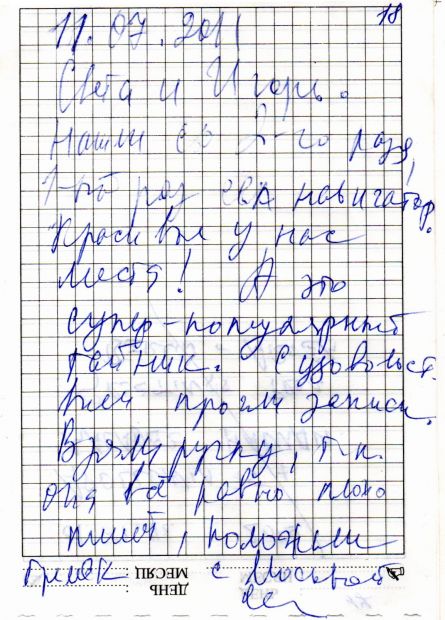 18
11.07.2011
Света и Игорь.
Нашли со 2-го раза,
1-ый раз сел навигатор.
Красивые у нас
места! А это
супер-популярный
тайник. С удовольст.
вием прочли записи.
Взяли ручку, т.к.
она всё равно плохо
пишет, положили
брелок с Москвой
ДЕНЬ :
МЕСЯЦ